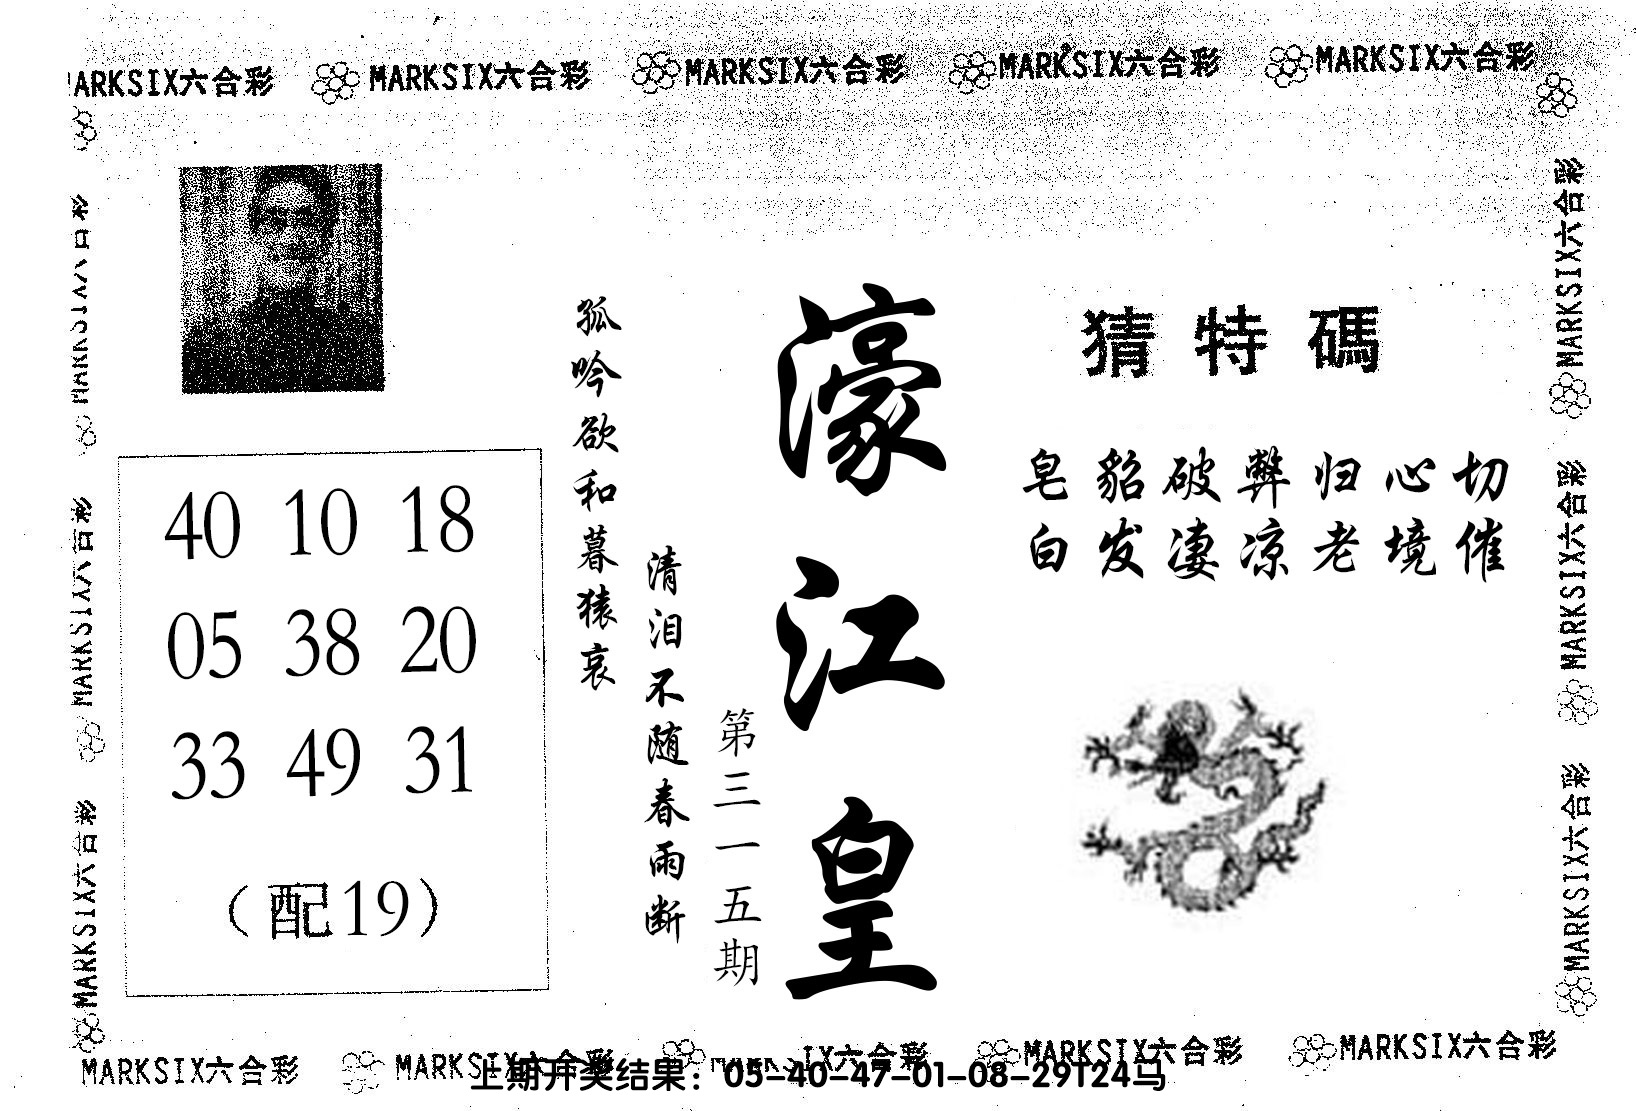 MARKSIX六合彩 MARKSIX六合彩 MARKSIX六合彩 MARKSIX六合彩 MARKSIX六合彩
猜特碼
皂貂破弊归心切
白发凄凉老境催
濠江皇
第三一五期
清泪不随春雨断
孤吟欲和暮猿哀
40 10 18
05 38 20
33 49 31
(配19)
MARKSIX六合彩
MARKSIX六合彩
MARKSIX六合彩
MARKSIX六合彩
MARKSIX六合彩
MARKSIX六合彩
MARKSIX六合彩 MARKSIX六合彩 MARKSIX六合彩 MARKSIX六合彩 MARKSIX六合彩
上期开奖结果：05-40-47-01-08-29T24马